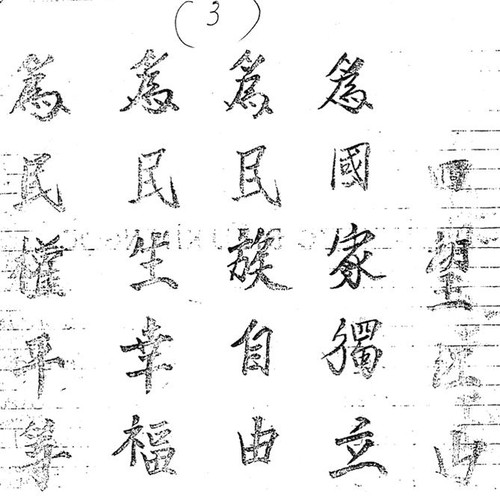 (3)
四望江山
為國家獨立
為民族自由
為民生幸福
為民權平等